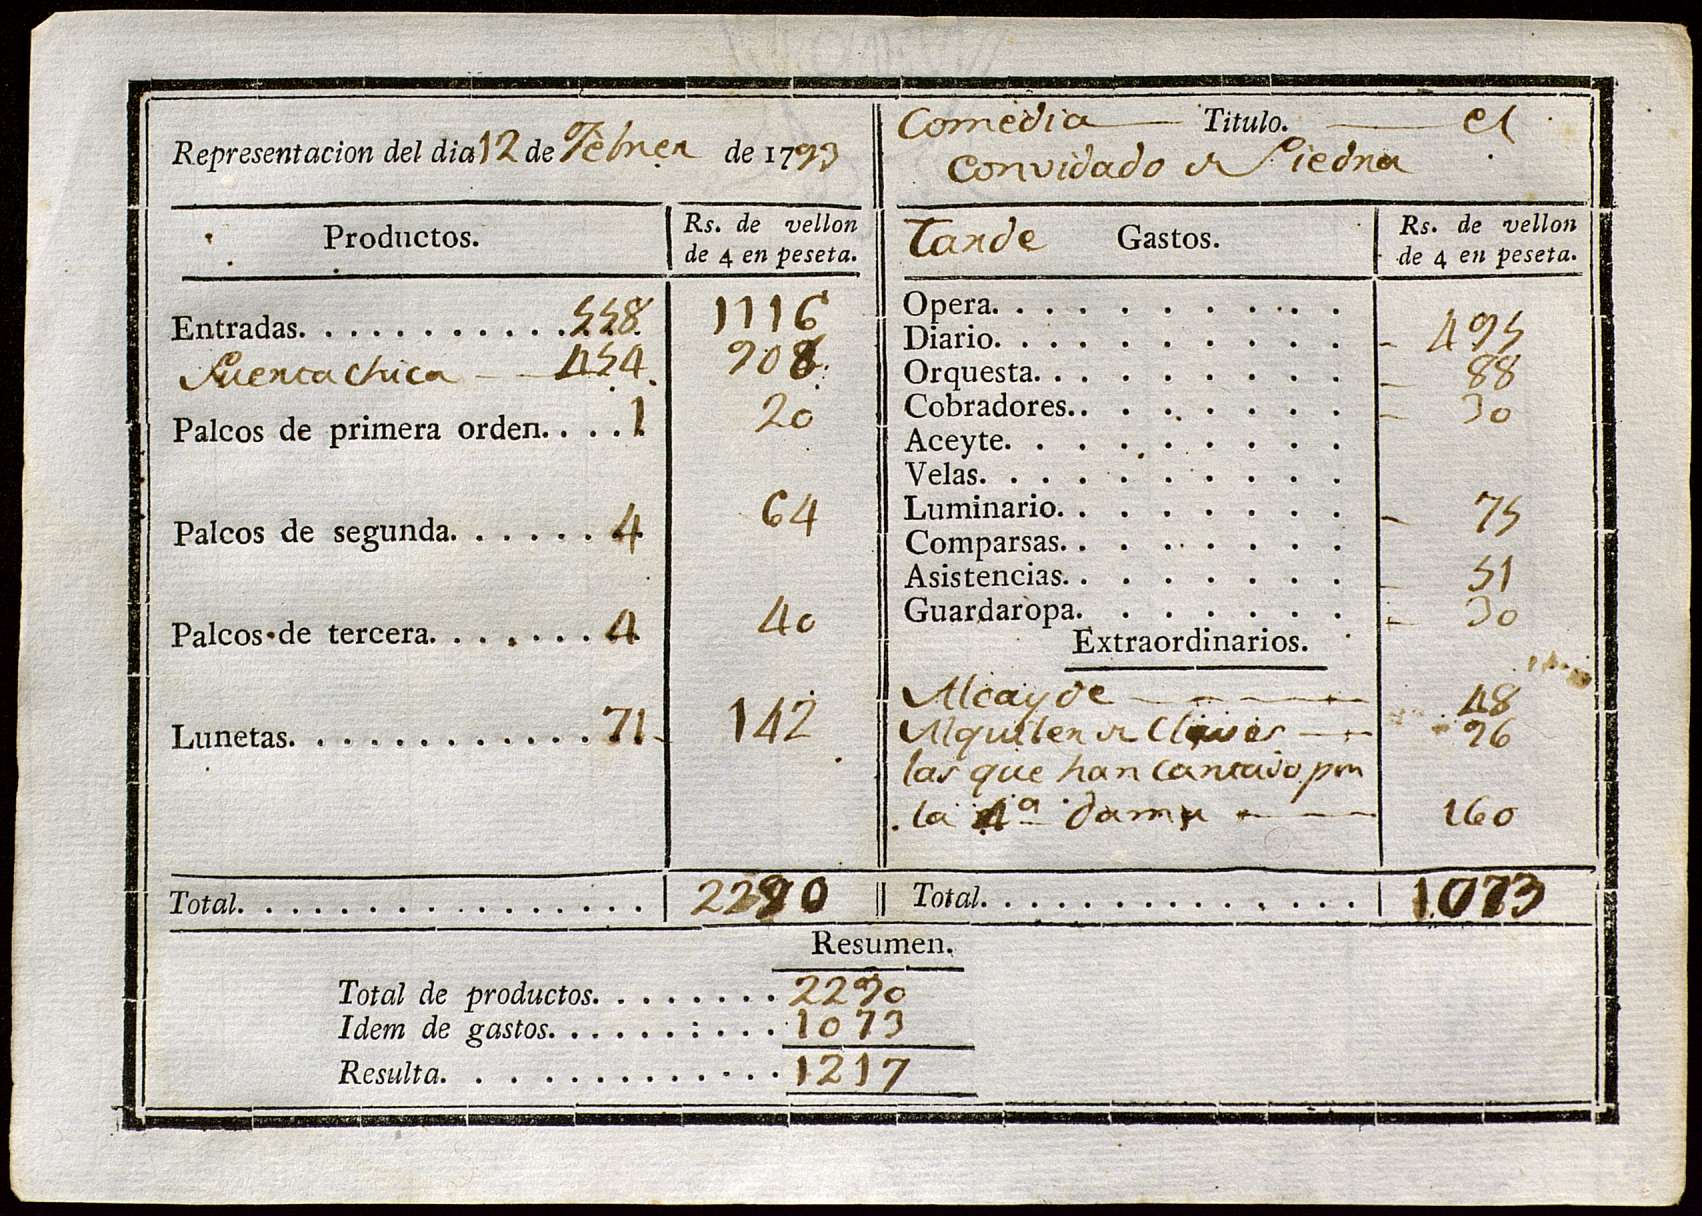 Representacion del dia 12 de Febrero de 1793
Productos. Rs. de vellon
de 4 en peseta.
Entradas. . . . . . . . . . . . 558 1116
Puerta chica 454 908
Palcos de primera orden. . . . . 1 20
Palcos de segunda. . . . . . 4 64
Palcos de tercera. . . . . . . 4 40
Lunetas. . . . . . . . . . . . 71 142
Total. . . . . . . . . . . . . . . . . 2290
Comedia Titulo. el
convidado de Piedra
Tarde Gastos. Rs. de vellon
de 4 en peseta.
Opera. . . . . . . . . .
Diario. . . . . . . . . . 495
Orquesta. . . . . . . . . 88
Cobradores. . . . . . . . 30
Aceyte. . . . . . . . . .
Velas. . . . . . . . . .
Luminario. . . . . . . . 75
Comparsas. . . . . . . .
Asistencias. . . . . . . . 51
Guardaropa. . . . . . . 30
Extraordinarios.
Alcayde 48
Alquiler de Claves 96
las que han cantado por
la 4ª dama 160
Total. . . . . . . . . . . . . . . 1073
Resumen.
Total de productos. . . . . . . . 2290
Idem de gastos. . . . . . : . . . 1073
Resulta. . . . . . . . . . . . . 1217